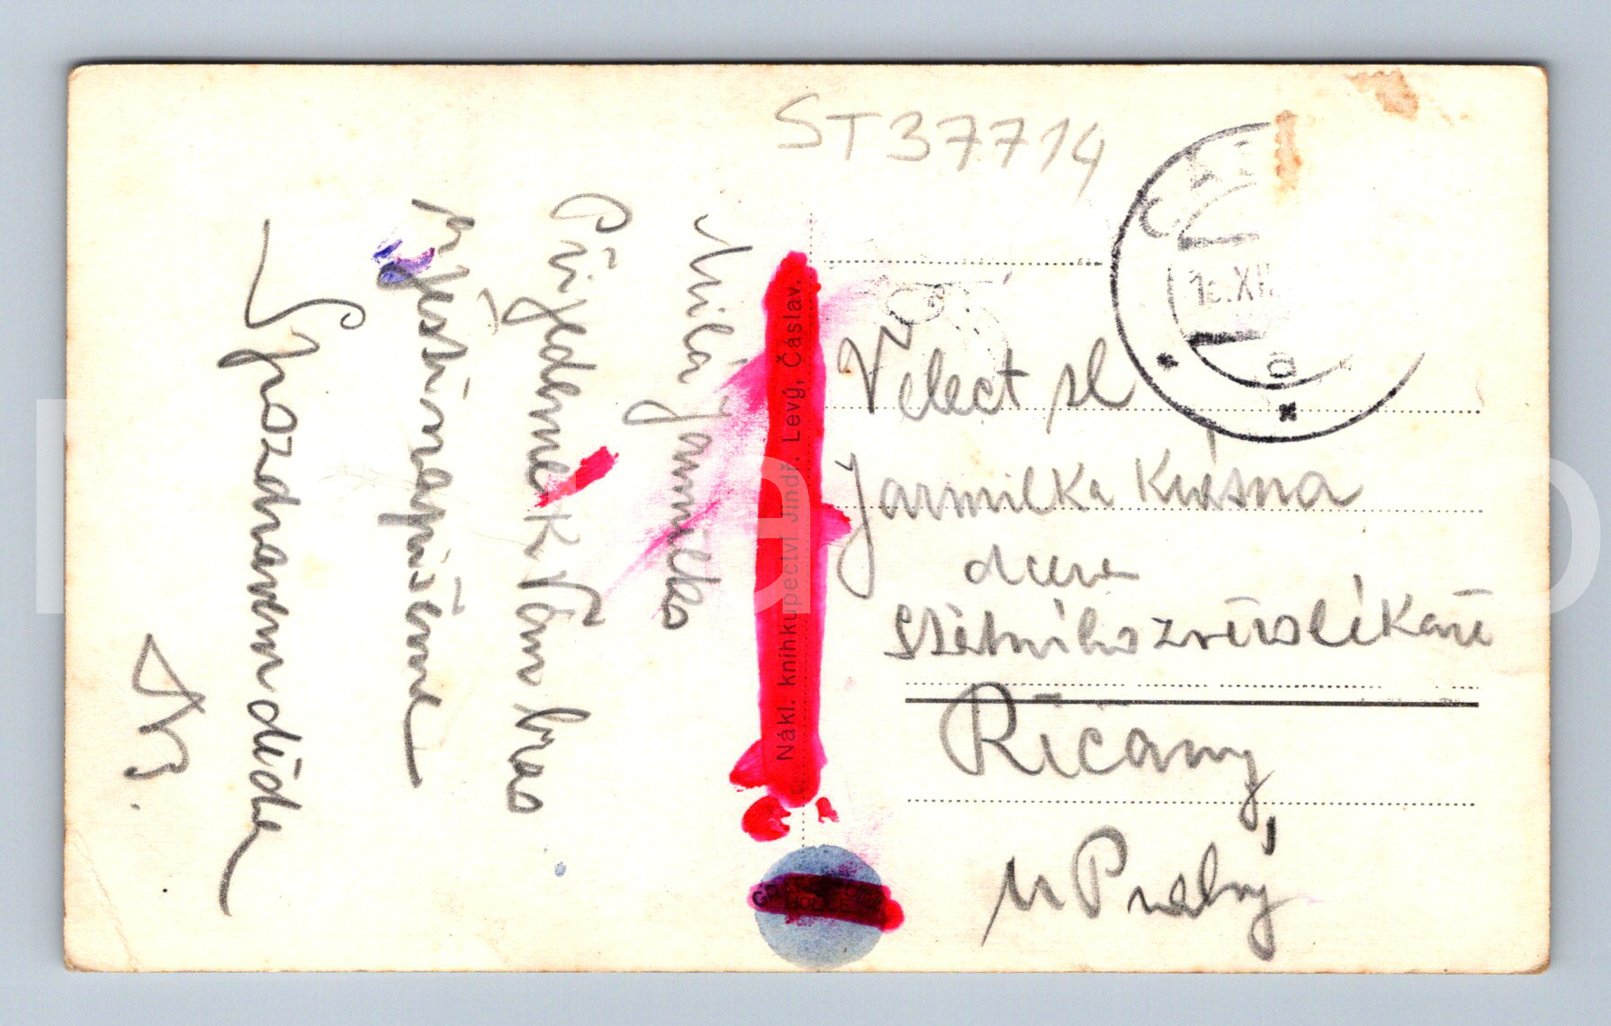 ST37714
Milá Jarmilko
Přijedeme k Vám bras
jestli napíšeme
S pozdravem děda
Nákl. knihkupectví Jindř. Levý, Čáslav.
XII.
Velect sl
Jarmilka Krásna
dcera
státního zvěrolékaře
Říčany
u Prahy